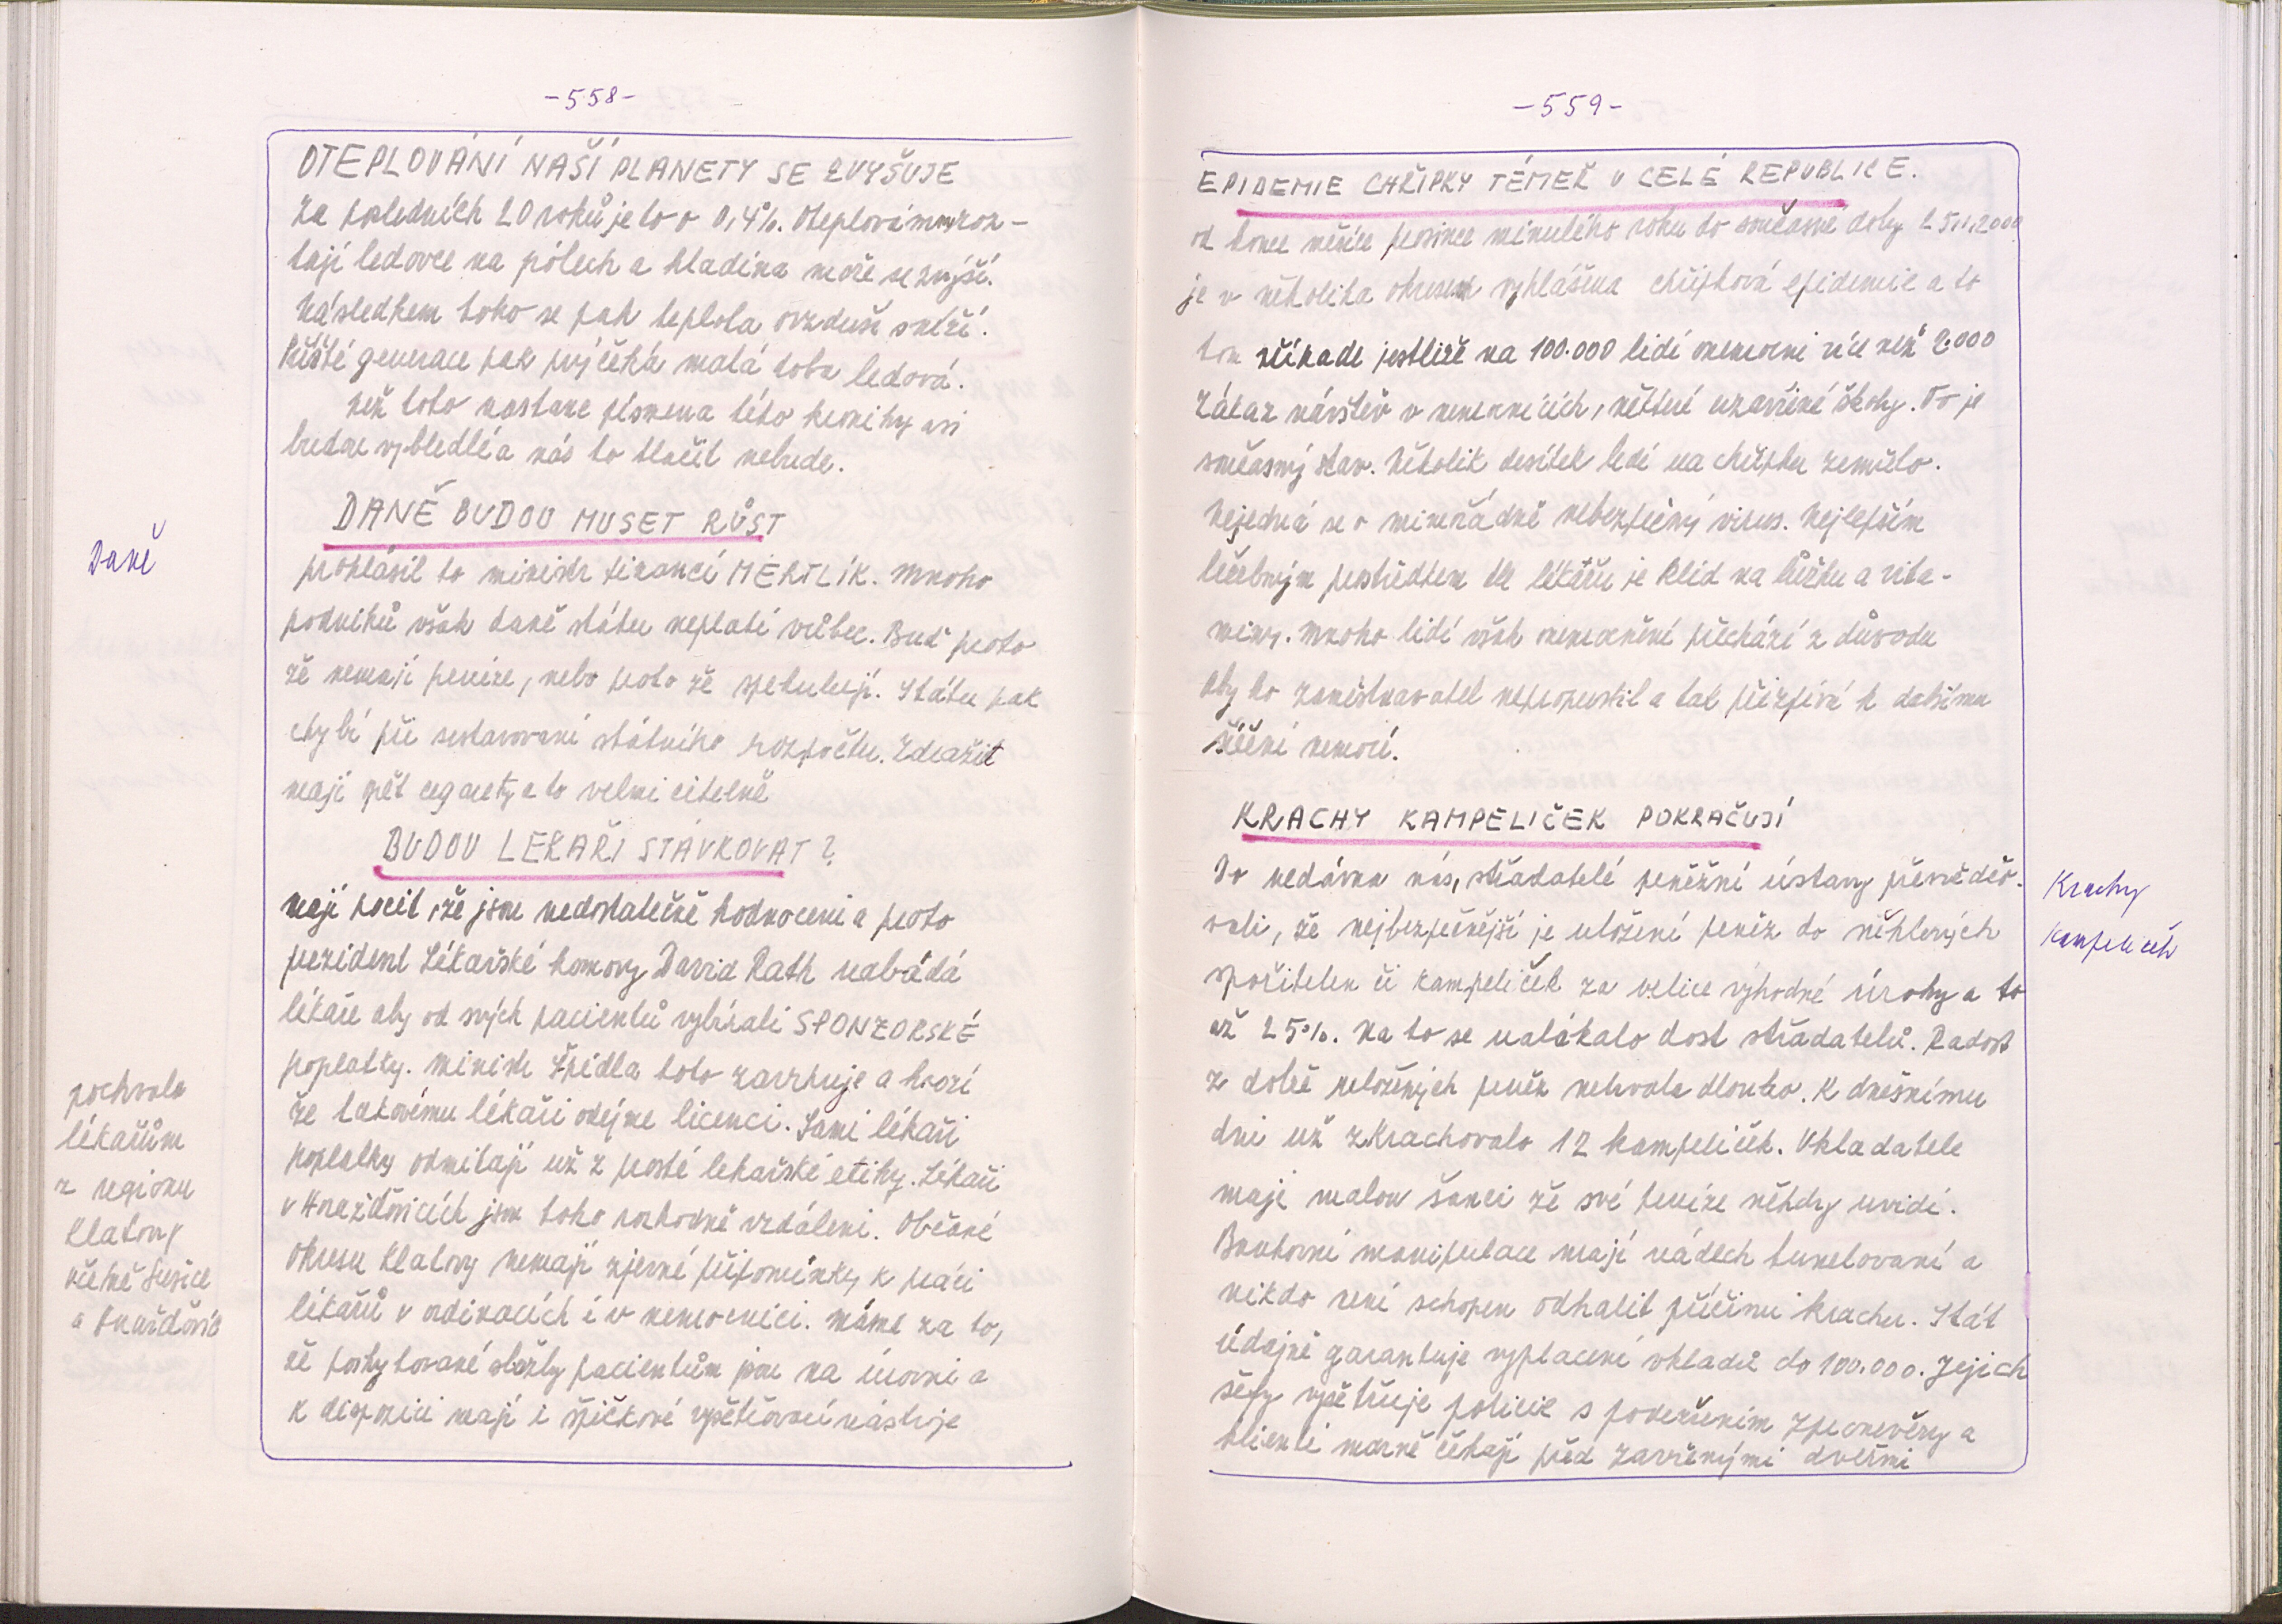 -558-
OTEPLOVÁNÍ NAŠÍ PLANETY SE ZVYŠUJE
Za posledních 20 roků je to o 0,4%. Oteplováním roz-
tají ledovce na pólech a hladina moře se zvýší.
Následkem toho se pak teplota ovzduší sníží.
Příští generace pak prý čeká malá doba ledová.
Než toto nastane písmena této kroniky asi
budou vybledlé a nás to tlačit nebude.
Daně
DANĚ BUDOU MUSET RŮST
prohlásil to ministr financí MERTLÍK. Mnoho
podniků však daně státu neplatí vůbec. Buď proto
že nemají peníze, nebo proto že spekulují. Státu pak
chybí při sestavování státního rozpočtu. Zdražit
mají opět cigarety a to velmi citelně
BUDOU LEKAŘI STÁVKOVAT?
mají pocit, že jsou nedostatečně hodnoceni a proto
prezident Lékařské komory David Rath nabádá
lékaře aby od svých pacientů vybírali SPONZORSKÉ
poplatky. Ministr Špidla toto zavrhuje a hrozí
že takovému lékaři odejme licenci. Sami lékaři
poplatky odmítají už z prosté lekařské etiky. Lékaři
v Horažďovicích jsou toho rozhodně vzdáleni. Občané
okresu Klatovy nemají zjevné připomínky k práci
lékařů v ordinacích i v nemocnici. Máme za to,
že poskytované služby pacientům jsou na úrovni a
k dispozici mají i špičkové vyšetřovací nástroje
pochvala
lékařům
z regionu
Klatovy
včetně Sušice
a Horažďovic
-559-
EPIDEMIE CHŘIPKY TÉMEŘ V CELÉ REPUBLICE.
od konce měsíce prosince minulého roku do současné doby 25.1.2000
je v několika okresech vyhlášena chřipková epidemie a to
tam všude jestliže na 100.000 lidí onemocní více než 2.000
Zákaz návštěv v nemocnicích, některé uzavřené školy. To je
současný stav. Několik desítek lidí na chřipku zemřelo.
Nejedná se o mimořádně nebezpečný virus. Nejlepším
léčebným prostředkem dle lékařů je klid na lůžku a vita-
miny. Mnoho lidí však onemocnění přechází z důvodu
aby ho zaměstnavatel nepropustil a tak přispívá k dalšímu
šíření nemocí.
KRACHY KAMPELIČEK POKRAČUJÍ
Do nedávna nás, střadatelé peněžní ústavy převědčo-
vali, že nejbezpečnější je uložení peněz do některých
spořitelen či kampeliček za velice výhodné úroky a to
až 25%. Na to se nalákalo dost střadatelů. Radost
z dobře uložených peněz netrvala dlouho. K dnešnímu
dni už zkrachovalo 12 kampeliček. Vkladatele
maje malou šanci že své peníze někdy uvidí.
Bankovní manipulace mají nádech tunelovaní a
nikdo není schopen odhalit příčinu krachu. Stát
údajně garantuje vyplacení vkladů do 100.000. Jejich
šéfy vyšetřuje policie s podezřením zpronevěry a
klienti marně čekají před zavřenými dveřmi
Krachy
kampeliček